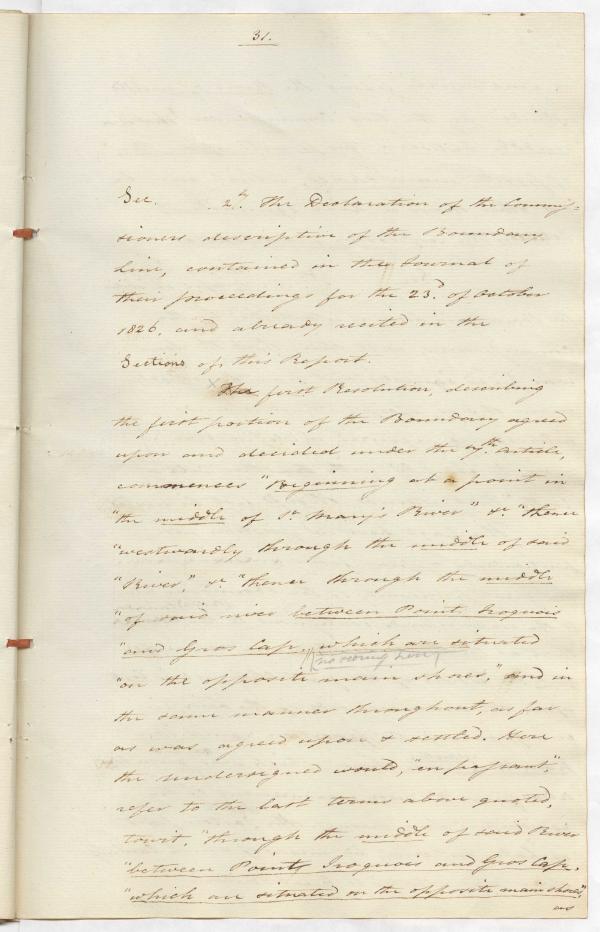 31.
See. 2.ly The Declaration of the Commis-
sioners descriptive of the Boundary
Line, contained in the Journal of
their proceedings for the 23.d of October
1826, and already recited in the
Sections of this Report.
x The first Resolution, describing
the first portion of the Boundary agreed
upon and decided under the 7th. article,
commences "Beginning at a point in
"the middle of St. Mary's River" &c "thence
"westwardly through the middle of said
"River," &c. "thence through the middle
"of said river between Point Iroquois
"and Gros Cap, which are situated
"on the opposite main shores," and in
the same manner throughout, as far
as was agreed upon & settled. Here
the undersigned would, "en passant",
refer to the last terms above quoted,
towit, "through the middle of said River
"between Points Iroquois and Gros Cap,
"which are situated on the opposite main shores,"
as